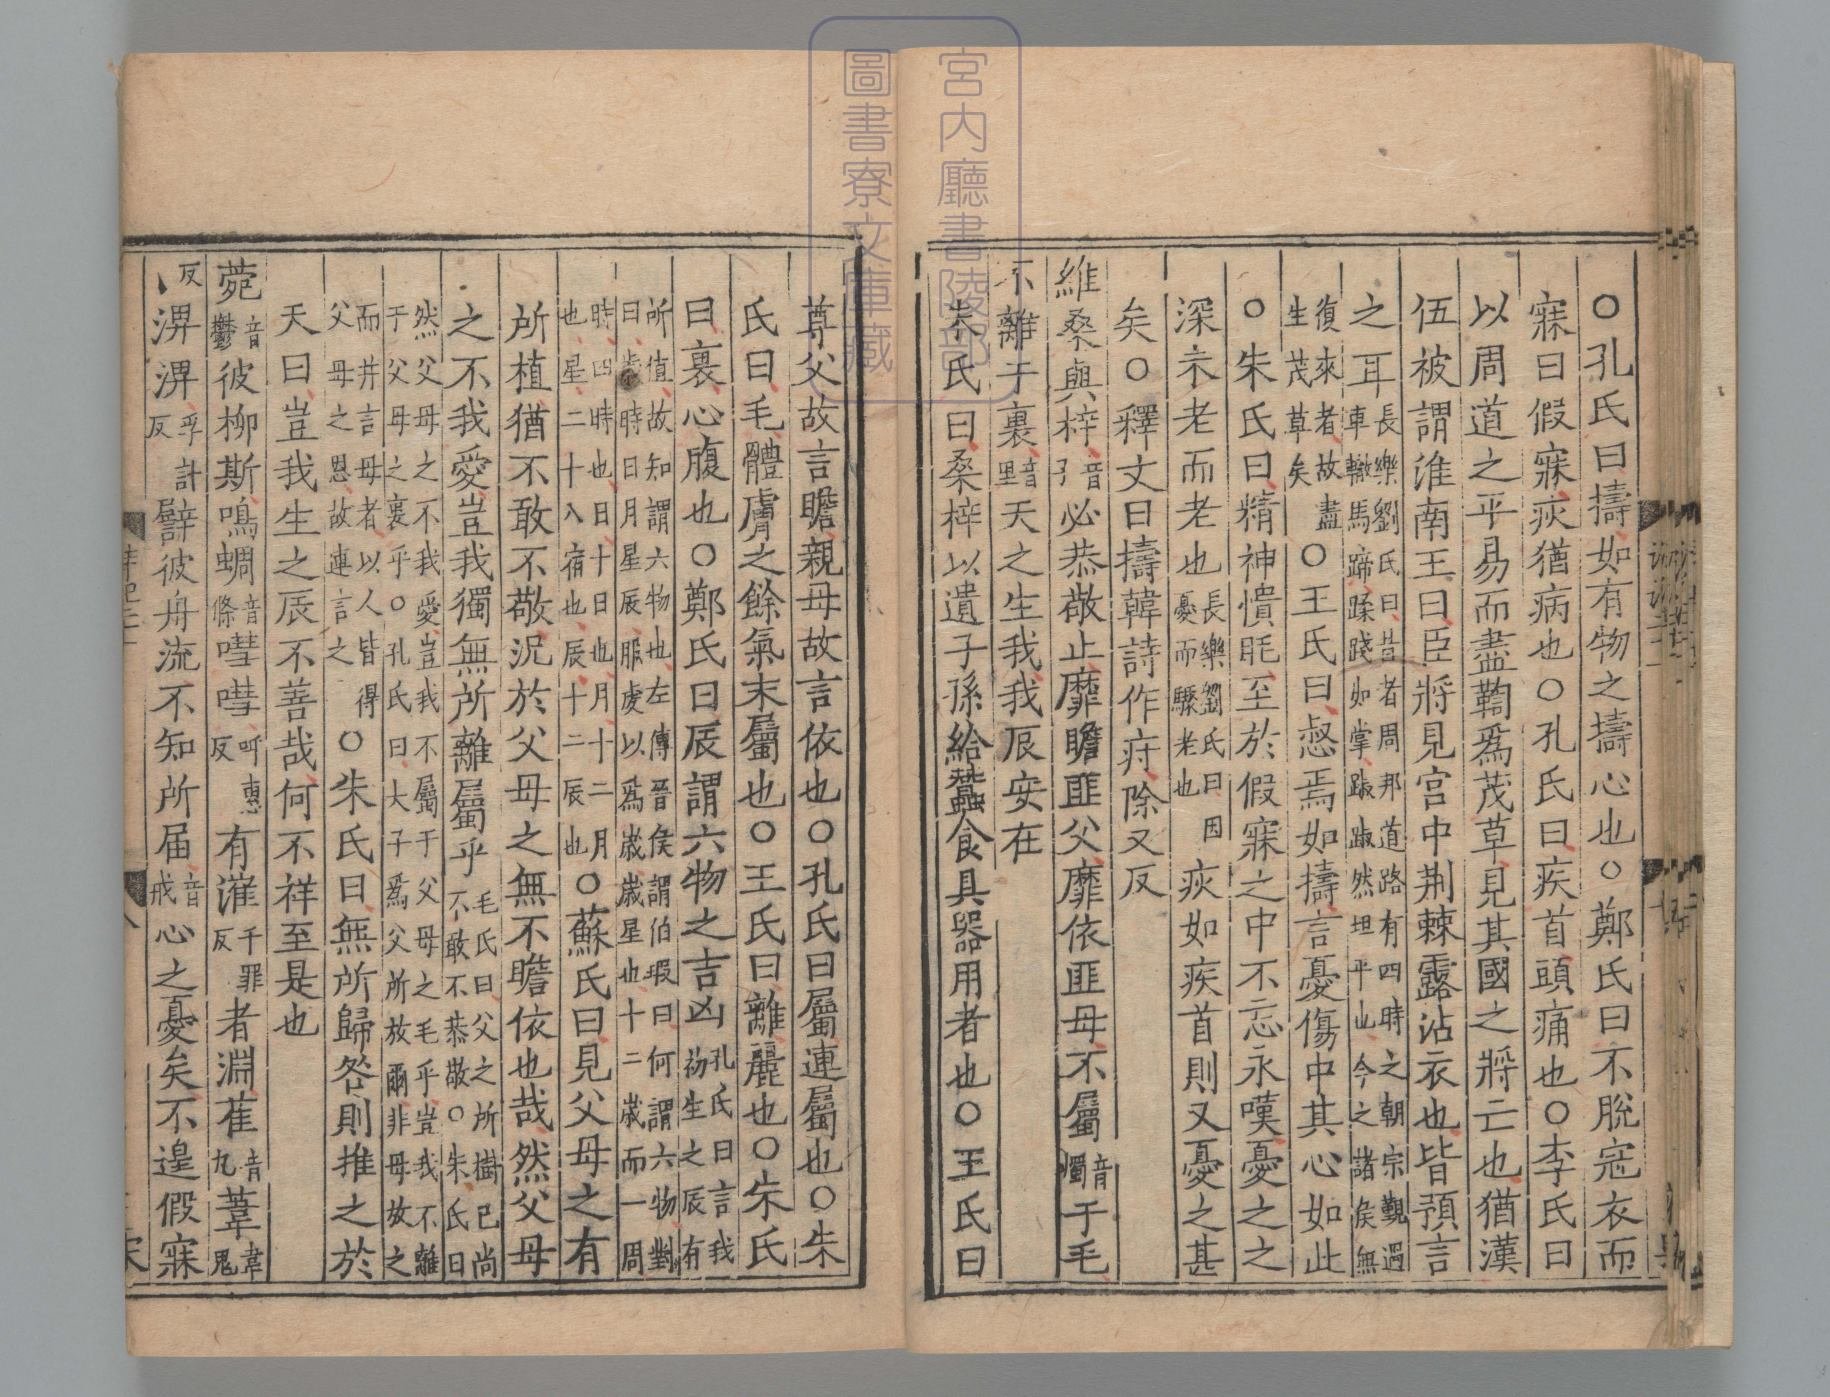 ○孔氏曰擣如有物之擣心也○鄭氏曰不脫冠衣而
寐曰假寐疢猶病也○孔氏曰疾首頭痛也○李氏曰
以周道之平易而盡鞫爲茂草見其國之將亡也猶漢
伍被謂淮南王曰臣將見宮中荆棘露沾衣也皆預言
之耳長樂劉氏曰昔者周邦道路有四時之朝宗覲遇
車轍馬蹄蹂踐如掌踧踧然坦平也今之諸侯無
復來者故盡
生茂草矣○王氏曰惄焉如擣言憂傷中其心如此
○朱氏曰精神憒眊至於假寐之中不忘永嘆憂之之
深未老而老也長樂劉氏曰因
憂而驟老也疢如疾首則又憂之甚
矣○釋文曰擣韓詩作疛除又反
維桑與梓音
子必恭敬止靡瞻匪父靡依匪母不屬音
燭于毛
不離于裏音
里天之生我我辰安在
朱氏曰桑梓以遺子孫給蠶食具器用者也○王氏曰
尊父故言瞻親母故言依也○孔氏曰屬連屬也○朱
氏曰毛體膚之餘氣末屬也○王氏曰離麗也○朱氏
曰裏心腹也○鄭氏曰辰謂六物之吉凶孔氏曰言我
初生之辰有
所值故知謂六物也左傳晉侯謂伯瑕曰何謂六物對
曰歲時日月星辰服虔以爲歲歲星也十二歲而一周
時四時也日十日也月十二月
也星二十八宿也辰十二辰也○蘇氏曰見父母之有
所植猶不敢不敬況於父母之無不瞻依也哉然父母
之不我愛豈我獨無所離屬乎毛氏曰父之所樹已尚
不敢不恭敬○朱氏曰
然父母之不我愛豈我不屬于父母之毛乎豈我不離
于父母之裏乎○孔氏曰大子爲父所放爾非母放之
而并言母者以人皆得
父母之恩故連言之○朱氏曰無所歸咎則推之於
天曰豈我生之辰不善哉何不祥至是也
菀音
鬱彼柳斯鳴蜩音
條嘒嘒呼惠
反有漼千罪
反者淵萑音
九葦韋鬼
反淠淠孚計
反譬彼舟流不知所屆音
戒心之憂矣不遑假寐
宮内廳書陵部
圖書寮文庫藏